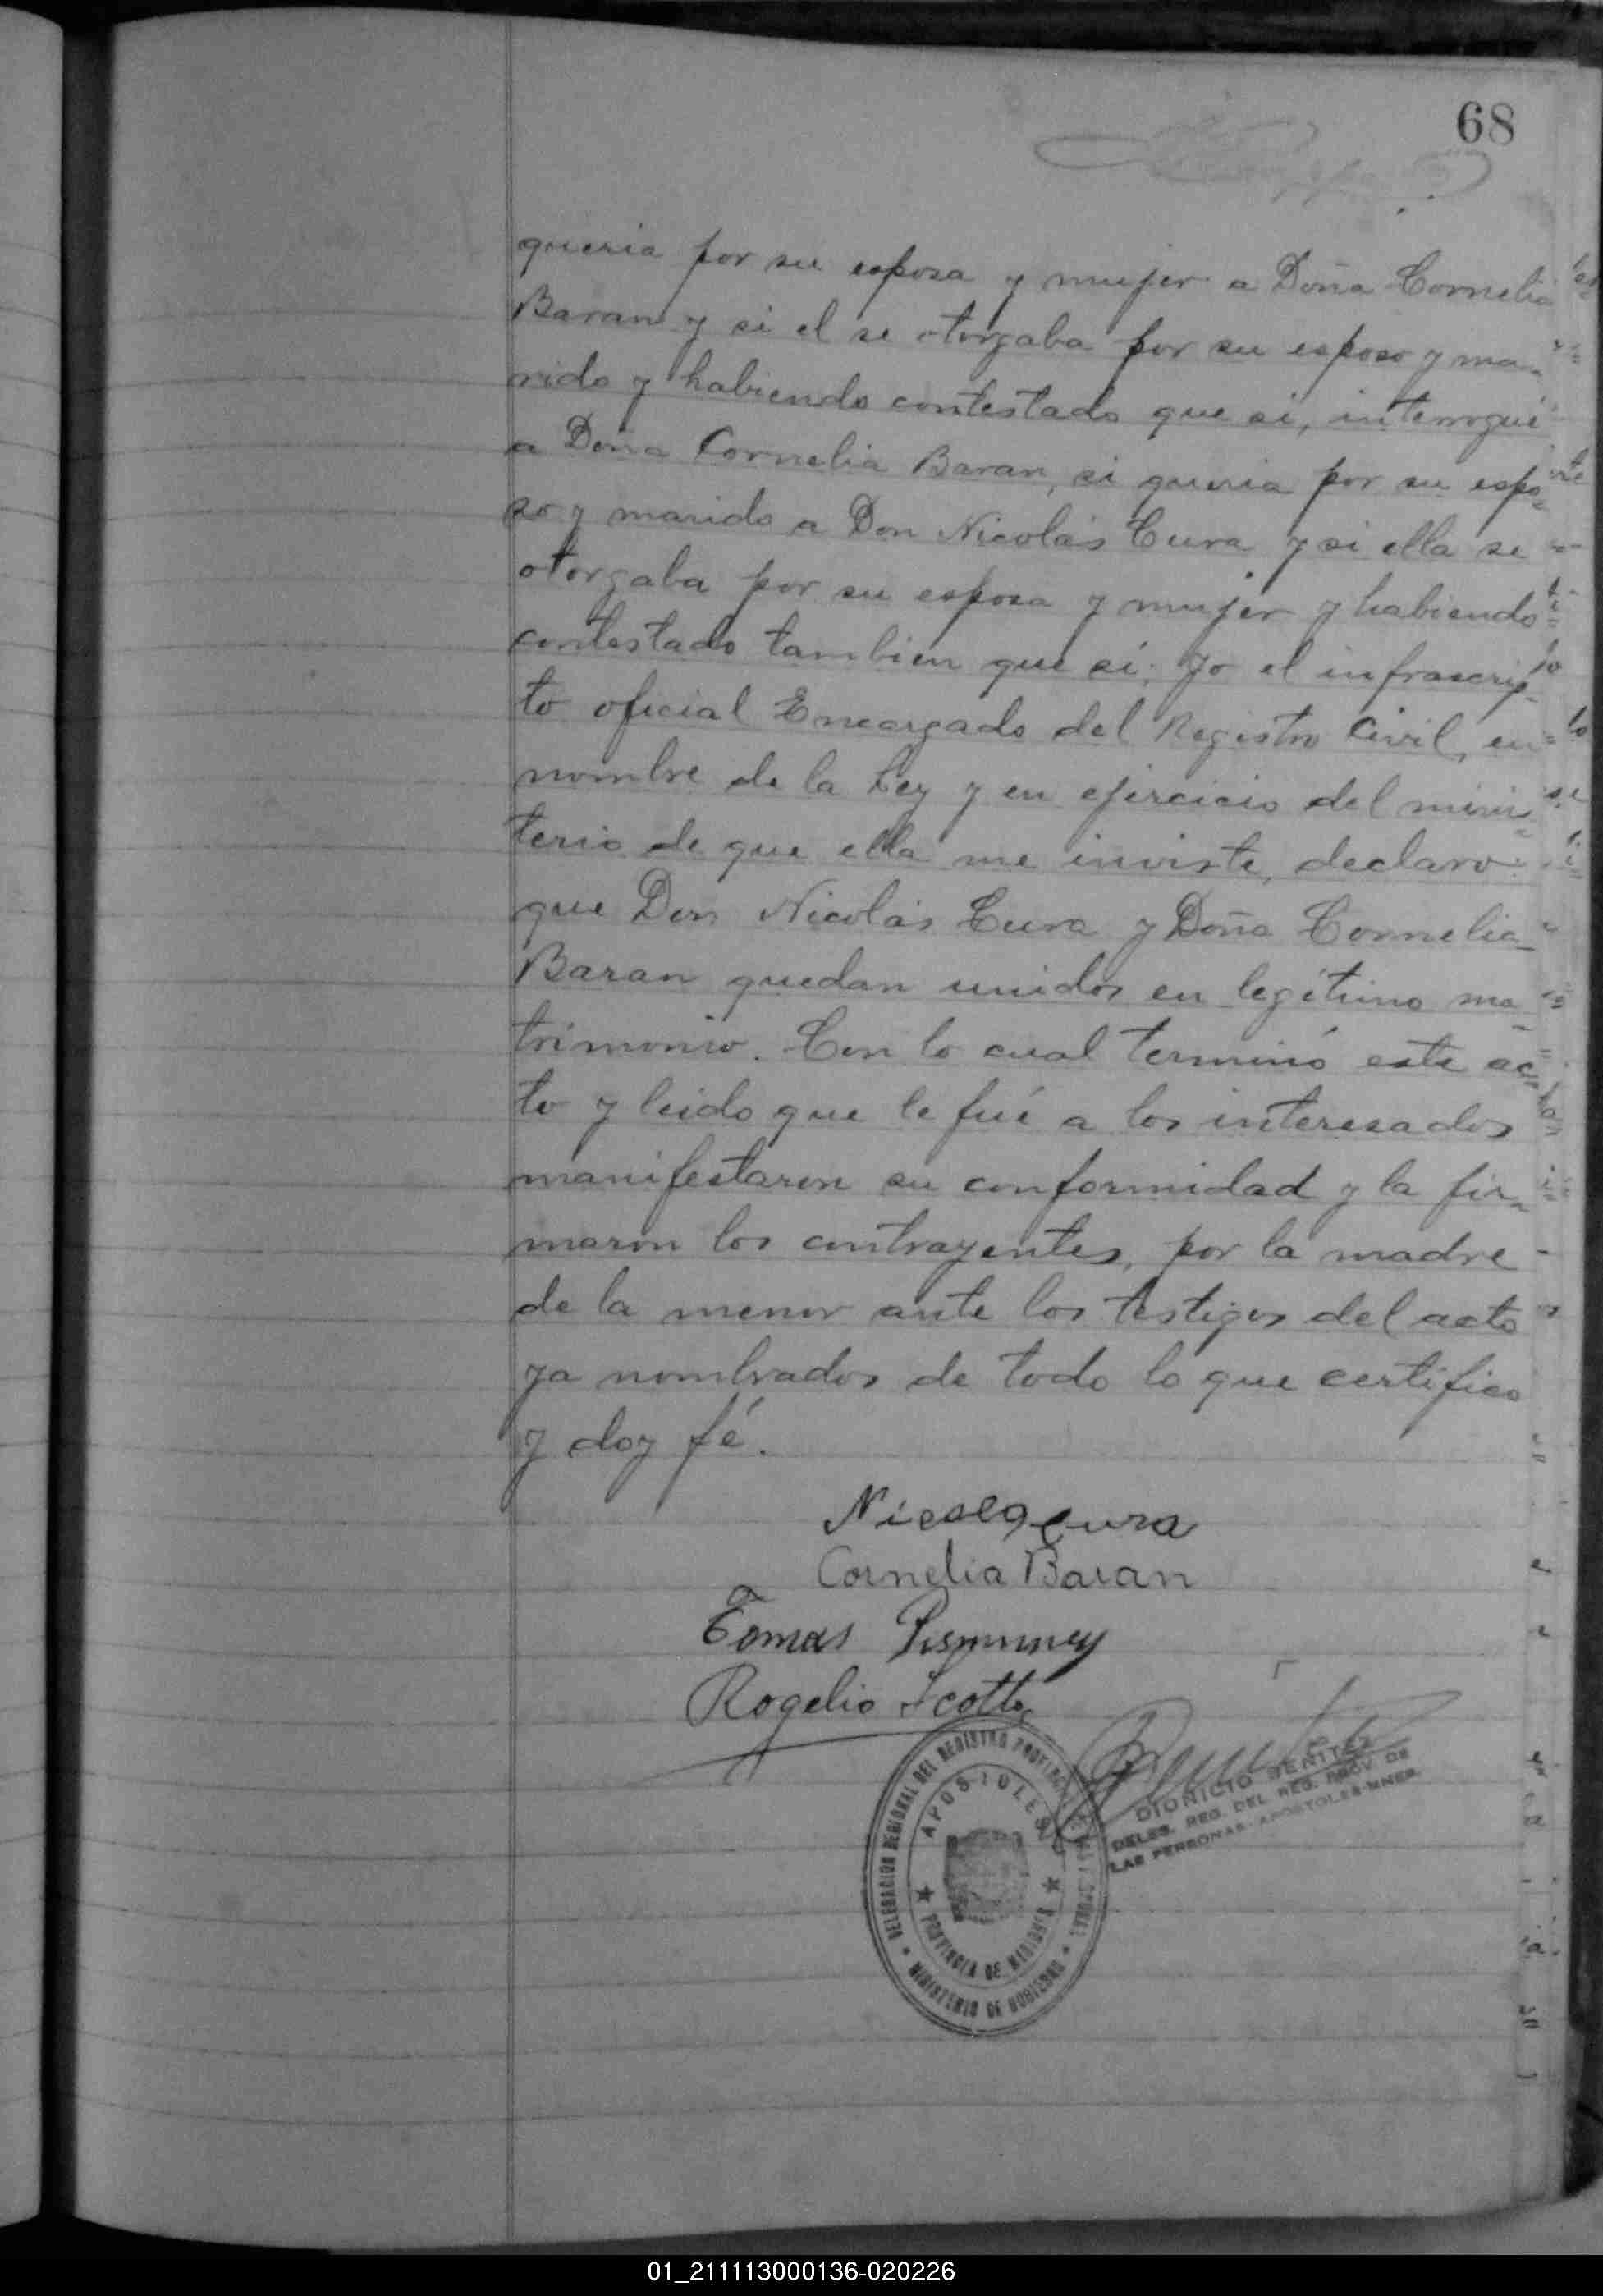 68
queria por su esposa y mujer a Doña Cornelia
Baran y si el se otorgaba por su esposo y ma-
rido y habiendo contestado que si, interrogué
a Doña Cornelia Baran, si queria por su espo-
so y marido a Don Nicolás Cura y si ella se
otorgaba por su esposa y mujer y habiendo
contestado tambien que sí; Yo el infrascrip-
to oficial Encargado del Registro Civil, en
nombre de la Ley y en ejercicio del minis-
terio de que ella me inviste, declaro
que Don Nicolás Cura y Doña Cornelia
Baran quedan unidos en legítimo ma-
trimonio. Con lo cual terminó este ac-
to y leido que le fué a los interesados
manifestaron su conformidad y la fir-
maron los contrayentes, por la madre
de la menor ante los testigos del acto
ya nombrados de todo lo que certifico
y doy fé.
Nicolas Cura
Cornelia Baran
Tomas
Rogelio Scotto
DELEGACION REGIONAL DEL REGISTRO PROVINCIAL DE LAS PERSONAS
APOSTOLES
PROVINCIA DE MISIONES
MINISTERIO DE GOBIERNO
DIONICIO BENITEZ
DELEG. REG. DEL REG. PROV. DE
LAS PERSONAS-APOSTOLES-MNES.
01_211113000136-020226